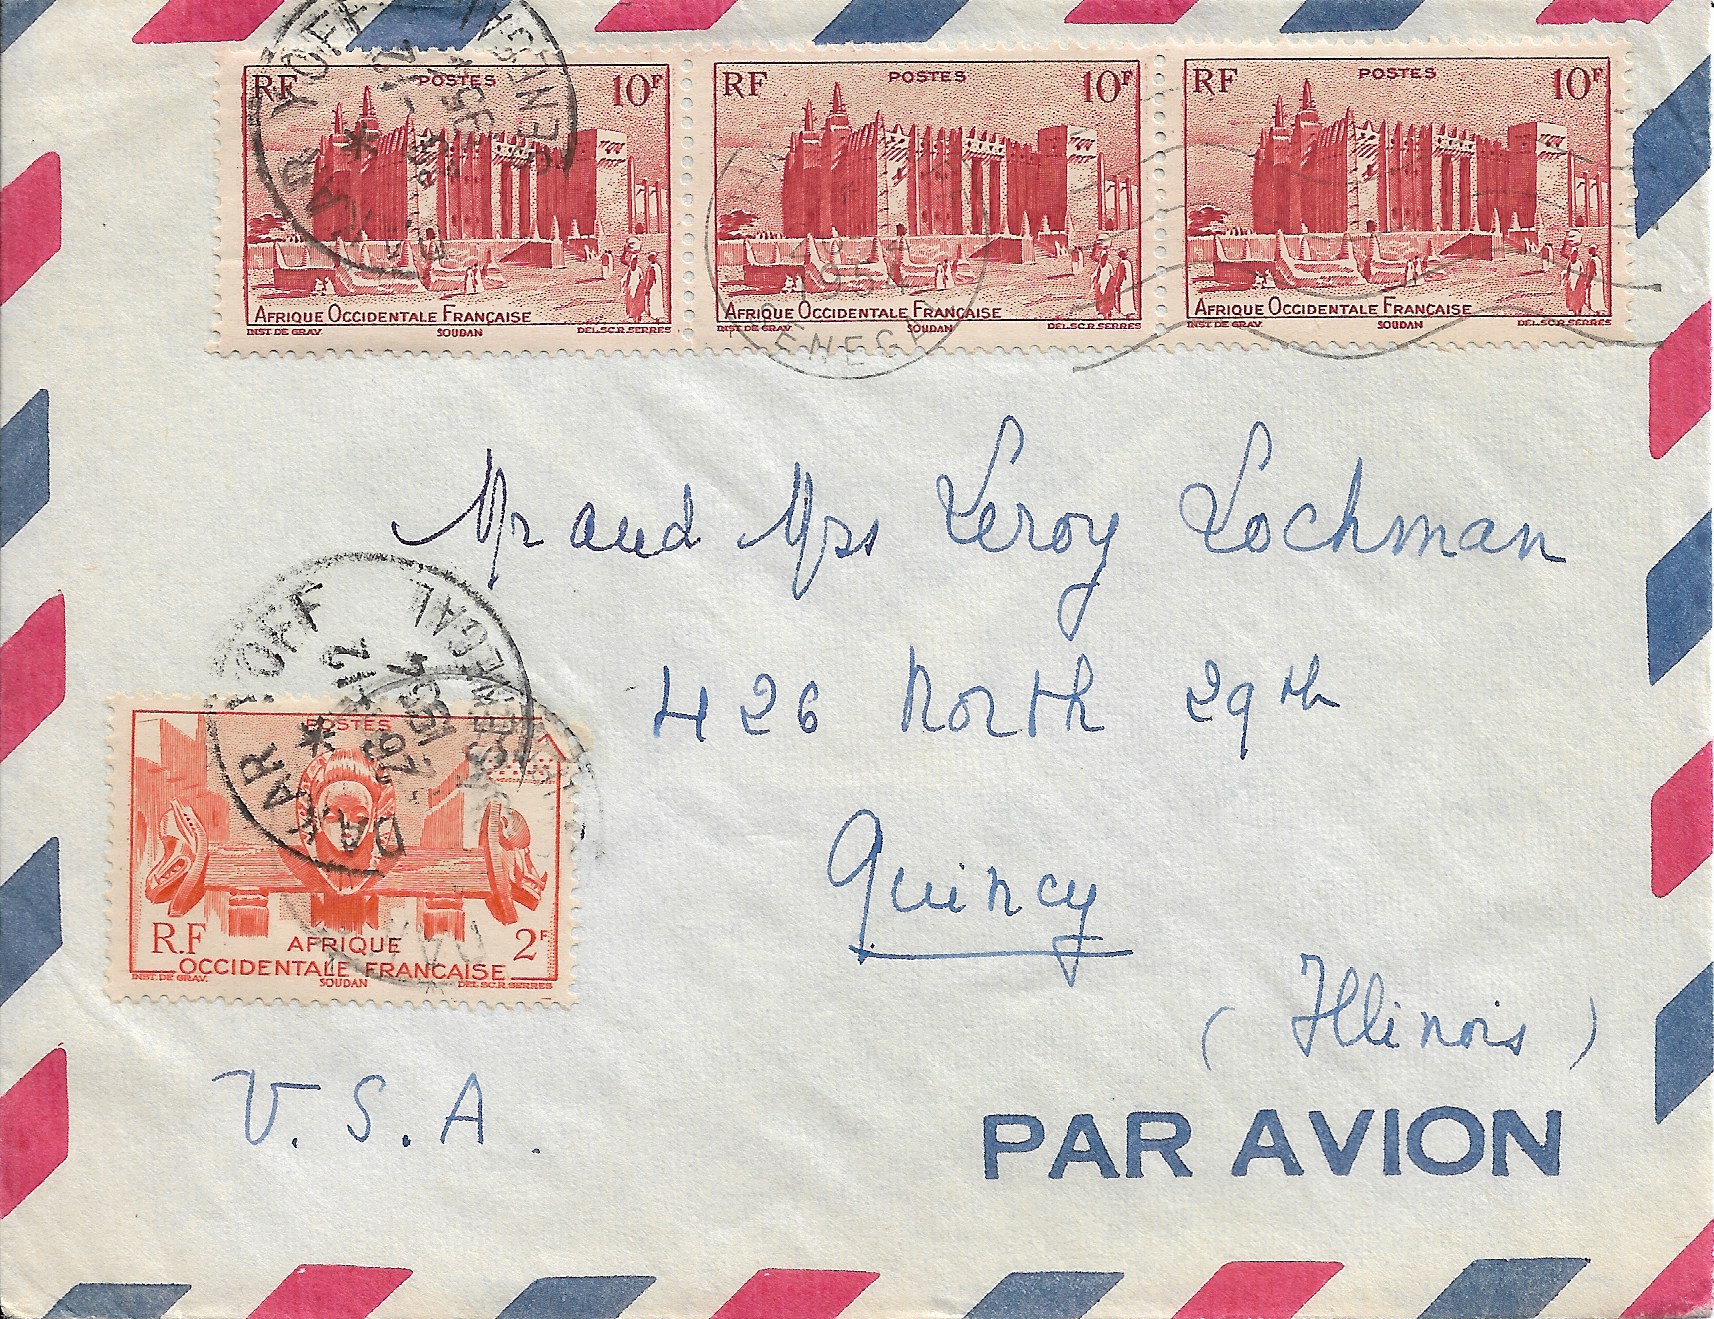 RF POSTES 10F
AFRIQUE OCCIDENTALE FRANÇAISE
INST DE GRAV. SOUDAN DEL.SC.R.SERRES
RF POSTES 10F
AFRIQUE OCCIDENTALE FRANÇAISE
INST DE GRAV. SOUDAN DEL.SC.R.SERRES
RF POSTES 10F
AFRIQUE OCCIDENTALE FRANÇAISE
INST DE GRAV. SOUDAN DEL.SC.R.SERRES
DAKAR YOFF
SENEGAL
1954
SENEGAL
Mr and Mrs Leroy Lochman
426 North 29th
Quincy
(Illinois)
U.S.A.
DAKAR YOFF
* 12
26 - 2
1954
SENEGAL
POSTES
R.F AFRIQUE 2F
OCCIDENTALE FRANÇAISE
INST. DE GRAV. SOUDAN DEL.SC.R.SERRES
PAR AVION